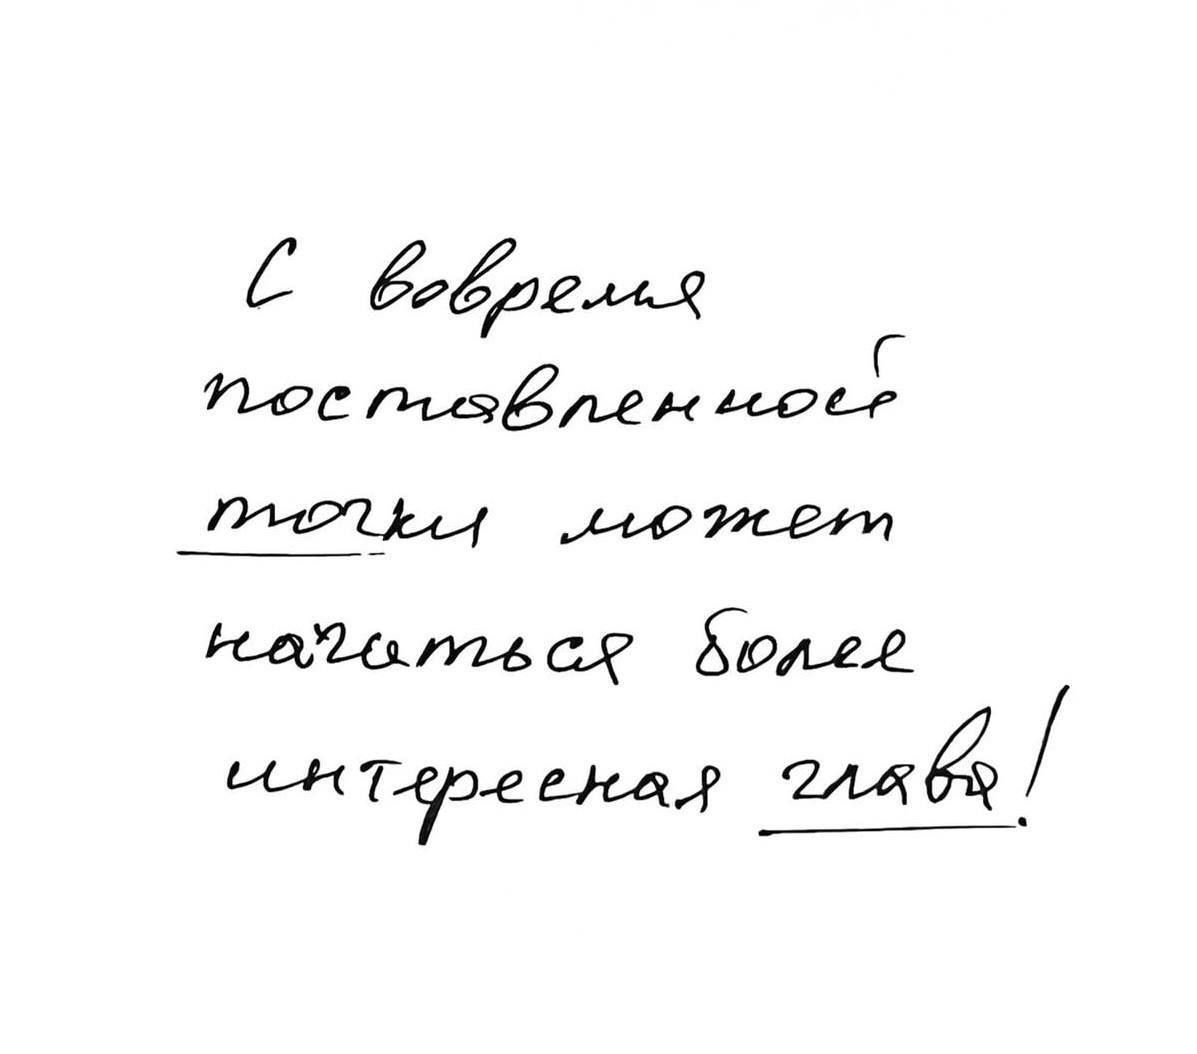 С вовремя
поставленной
точки может
начаться более
интересная глава!